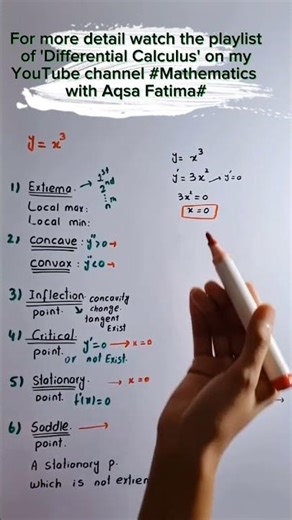 For more detail watch the playlist
of 'Differential Calculus' on my
YouTube channel #Mathematics
with Aqsa Fatima#
y = x³
1) Extrema → 1st
2nd
nth
Local max:
Local min:
2) Concave : y''>0 →
Convax : y''<0 →
3) Inflection concavity
point. ↘ change.
tangent
Exist
4) Critical y'=0 → x=0
point. or not Exist.
5) Stationary → x=0
point. f'(x)=0
6) Saddle →
point.
A stationary p.
which is not extrem
y = x³
y' = 3x² → y'=0
3x²=0
x=0